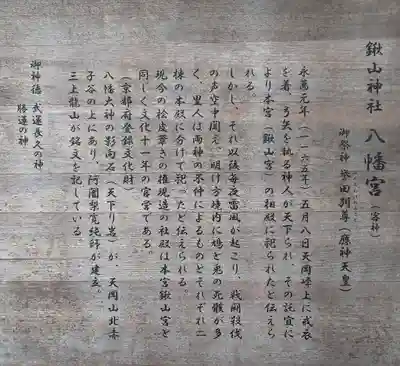 鍬山神社 八幡宮(客神)
御祭神 誉田別尊(應神天皇)
永萬元年(一一六五年)五月八日天岡峰上に戎衣
を着、弓矢を執る神人が天下られ、その託宣に
より本宮(鍬山宮)の相殿に祀られたと伝えら
れる。
しかし、それ以後毎夜雷風が起こり、戦闘殺伐
の声空中に聞え、明け方境内に鳩と兎の死骸が多
く、里人は両神の不仲によるものとそれぞれ二
棟の本殿に分けて祀ったと伝えられる。
現今の松皮葺きの権現造の社殿は本宮鍬山宮と
同じく文化十一年の宮営である。
(京都府登録文化財)
八幡大神の影向石(天下り岩)が天岡山北赤
子谷の上にあり、阿闍梨寛純師が建立、
三上龍山が銘文を記している。
御神徳 武運長久の神
勝運の神